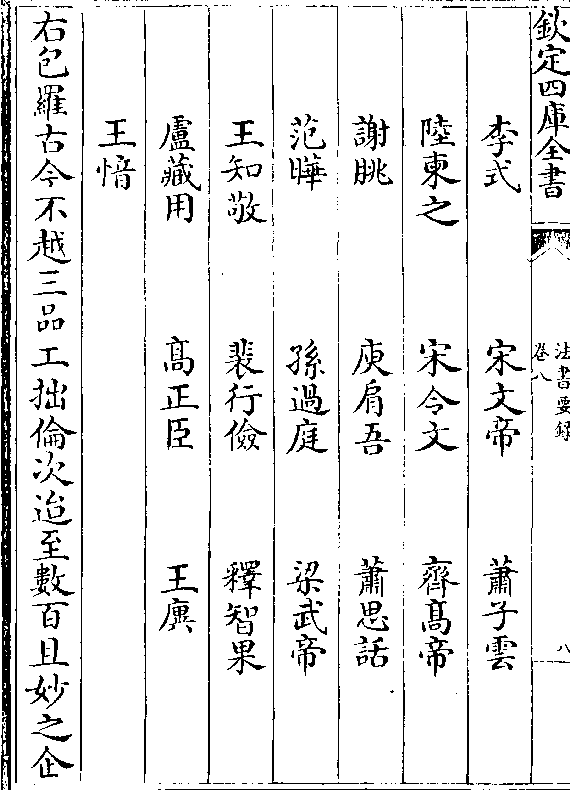 欽定四庫全書
法書要録
卷八
八
李式　宋文帝　蕭子雲
陸柬之　宋令文　齊髙帝
謝朓　庾肩吾　蕭思話
范曄　孫過庭　梁武帝
王知敬　裴行儉　釋智果
盧藏用　髙正臣　王廙
王愔
右包羅古今不越三品工拙倫次迨至數百且妙之企